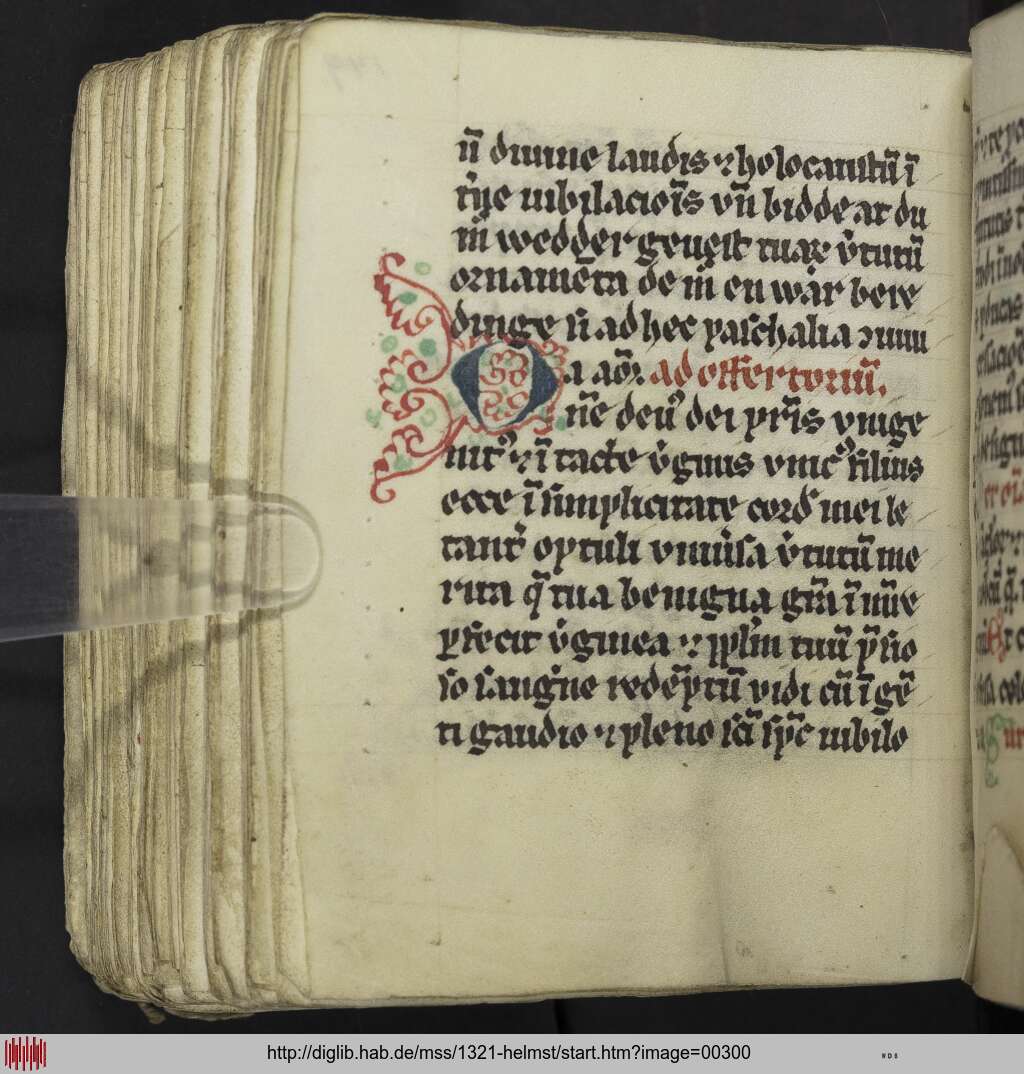 n̄ diuine laudis ⁊ holocaustū ī
t͛re iubilaciōis vn̄ bidde at du
m̄ wedder geuest tuaꝝ v̓tutū
ornamēta de m̄ en war bere
dinge sī ad hec paschalia ɔuiui
a aō⁊ ad offertoriū.
O n̄e deuꝰ dei pr̄is vnige
nitꝰ ⁊ ītacte v̓ginis vnicꝰ filius
ecce ī simplicitate cord̓ mei le
tant̓ optuli vniu̓sa v̓tutū me
rita q̄ tua benigna gr̄a ī me
ꝑfecit v̓ginea ⁊ ppl̄m tuū p̄cio
so sangu̓ne redēptū vidi cū īgē
ti gaudio ⁊ pleno sc̄i sp̄c iubilo
http://diglib.hab.de/mss/1321-helmst/start.htm?image=00300